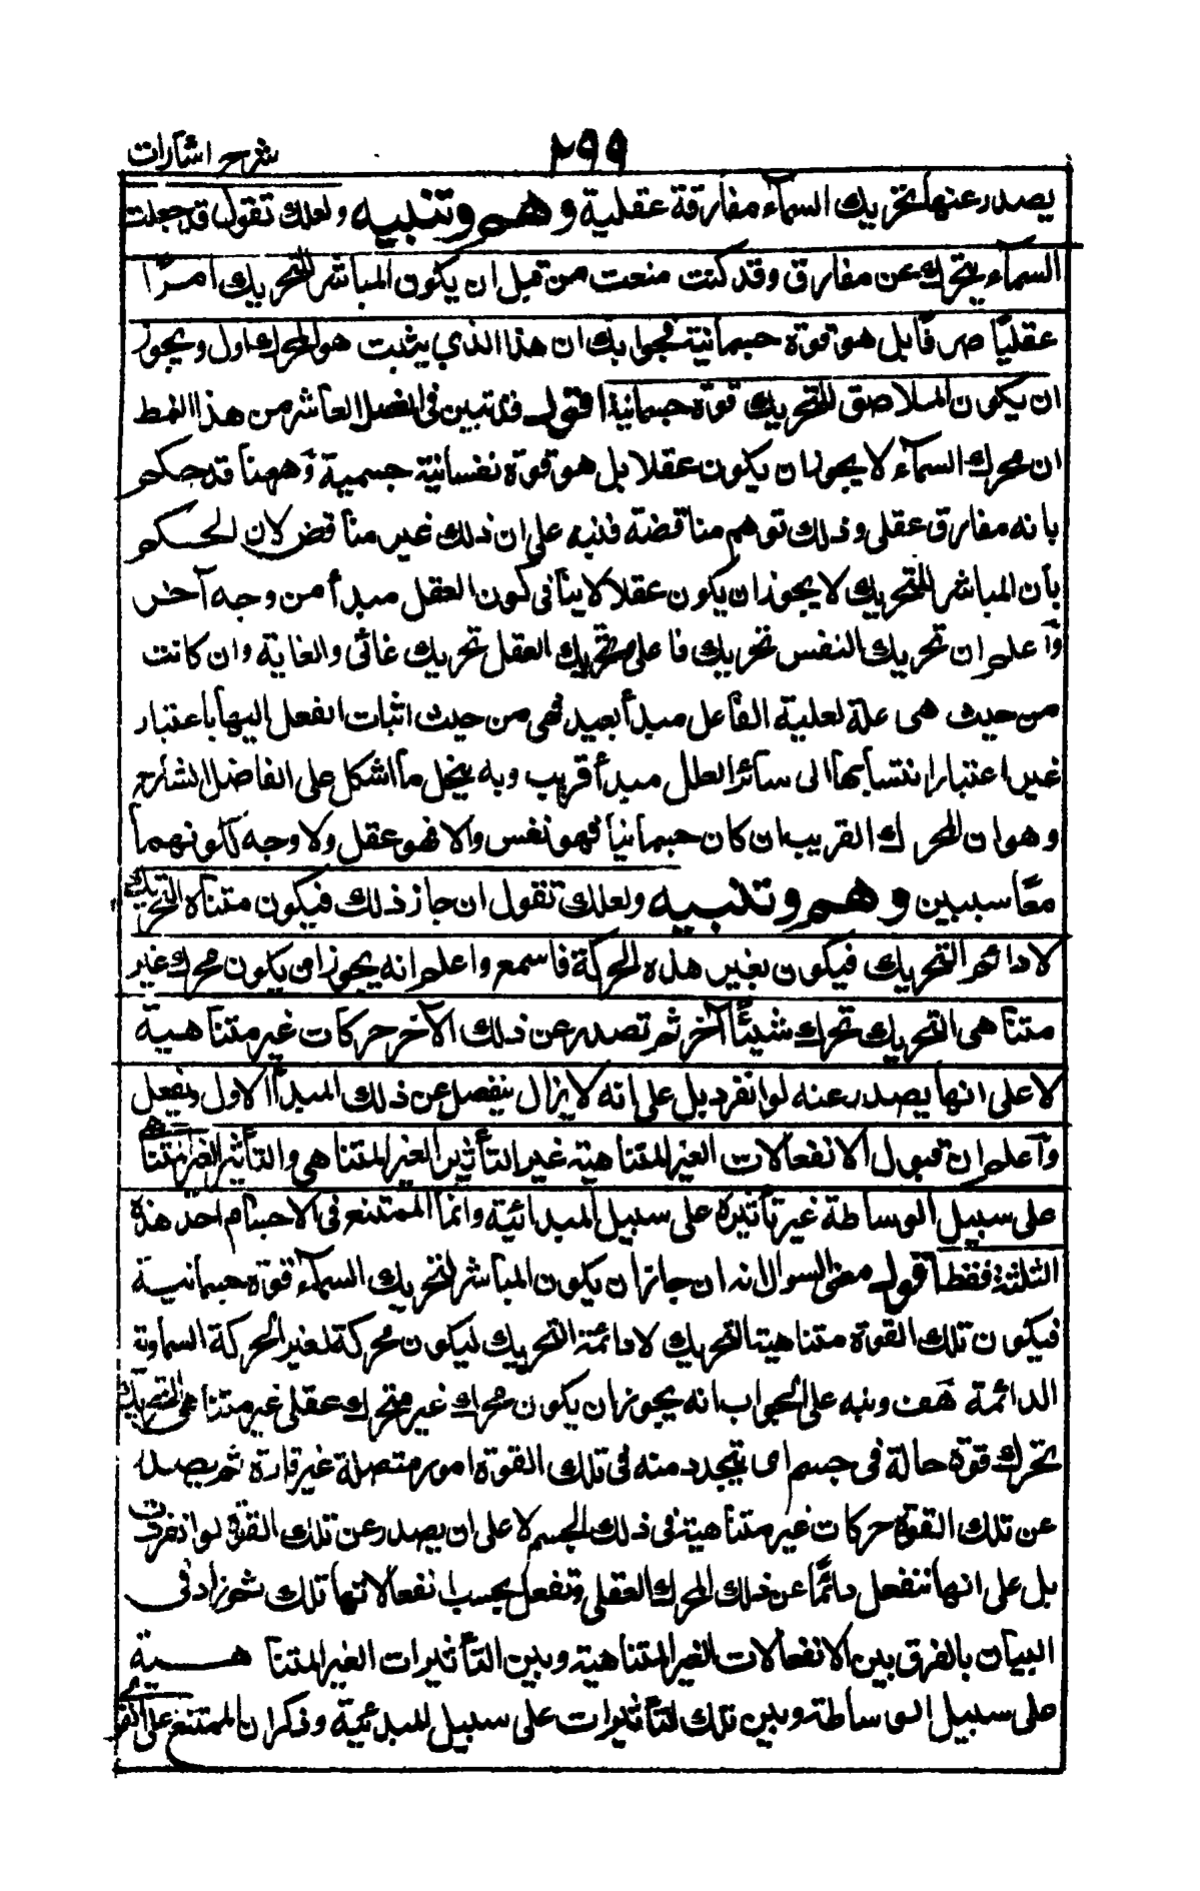 شرح اشارات
٢٩٩
يصدر عنها تحريك السمآء مفارقة عقلية وهم وتنبيه ولعلك تقول قد جعلت
السمآء يتحرك عن مفارق وقد كنت منعت من قبل ان يكون المباشر للتحريك امرًا
عقليًا صرفًا بل هو قوة جسمانية فجوابك ان هذا الذي يثبت هو المحرك الاول ويجوز
ان يكون الملاصق للتحريك قوة جسمانية اقول قد تبين فى الفصل العاشر من هذا النمط
ان محرك السمآء لا يجوز ان يكون عقلا بل هو قوة نفسانية جسمية وههنا قد حكم
بانه مفارق عقلى وذلك توهم مناقضة فنبه على ان ذلك غير مناقض لان الحكم
بأن المباشر للتحريك لا يجوز ان يكون عقلا لا ينافى كون العقل مبدأ من وجه آخر
وآعلم ان تحريك النفس تحريك فاعلى وتحريك العقل تحريك غائى والغاية وان كانت
من حيث هى علة لعلية الفاعل مبدأ بعيد فهى من حيث اثبات الفعل اليها باعتبار
غير اعتبار انتسابها الى سائر العلل مبدأ قريب وبه ينحل ما اشكل على الفاضل الشارح
وهو ان المحرك القريب ان كان جسمانيا فهو نفس والا فهو عقل ولا وجه لكونهما
معًا سببين وهم وتنبيه ولعلك تقول ان جاز ذلك فيكون متناه التحريك
لا دائم التحريك فيكون بغير هذه الحركة فاسمع واعلم انه يجوز ان يكون محرك غير
متناهى التحريك تحرك شيئًا آخر ثم تصدر عن ذلك الآخر حركات غير متناهية
لا على انها يصدر عنه لو انفرد بل على انه لا يزال ينفصل عن ذلك المبدأ الاول ويفعل
وآعلم ان قبول الانفعالات الغير المتناهية غير التأثير الغير المتناهى والتأثير الغير المتناهى
على سبيل الوساطة غير تأثيره على سبيل المبدائية وانما الممتنع فى الاجسام احد هذه
الثلثة فقط اقول معنى السوال انه ان جاز ان يكون المباشر لتحريك السمآء قوة جسمانية
فيكون تلك القوة متناهية التحريك لا دائمة التحريك ليكون محركة لغير الحركة السماوية
الدائمة هف ونبه على الجواب بانه يجوز ان يكون محرك غير متحرك عقلى غير متناهى التحريك
تحرك قوة حالة فى جسم اى يتجدد منه فى تلك القوة امور متصلة غير قارة ثم يصدر
عن تلك القوة حركات غير متناهية فى ذلك الجسم لا على ان يصدر عن تلك القوة لو انفردت
بل على انها تنفعل دائمًا عن ذلك المحرك العقلى وتفعل بحسب انفعالاتها تلك ثم زاد فى
البيان بالفرق بين الانفعالات الغير المتناهية وبين التأثيرات الغير المتناهية
على سبيل الوساطة وبين تلك التأثيرات على سبيل المبدئية وذكر ان الممتنع على